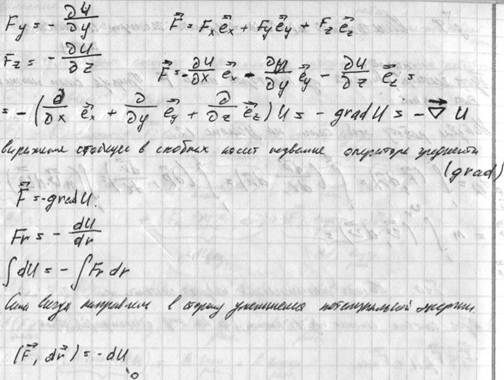 Fy = - ∂U/∂y    F⃗ = Fx e⃗x + Fy e⃗y + Fz e⃗z
Fz = - ∂U/∂z    F⃗ = - ∂U/∂x e⃗x - ∂U/∂y e⃗y - ∂U/∂z e⃗z =
= - (∂/∂x e⃗x + ∂/∂y e⃗y + ∂/∂z e⃗z) U = - grad U = - ∇⃗ U
выражение стоящее в скобках носит название оператора градиента
(grad)
F⃗ = - grad U.
Fr = - dU/dr
∫ dU = - ∫ Fr dr
Сила всегда направлена в сторону уменьшения потенциальной энергии
(F⃗, dr⃗) = - dU